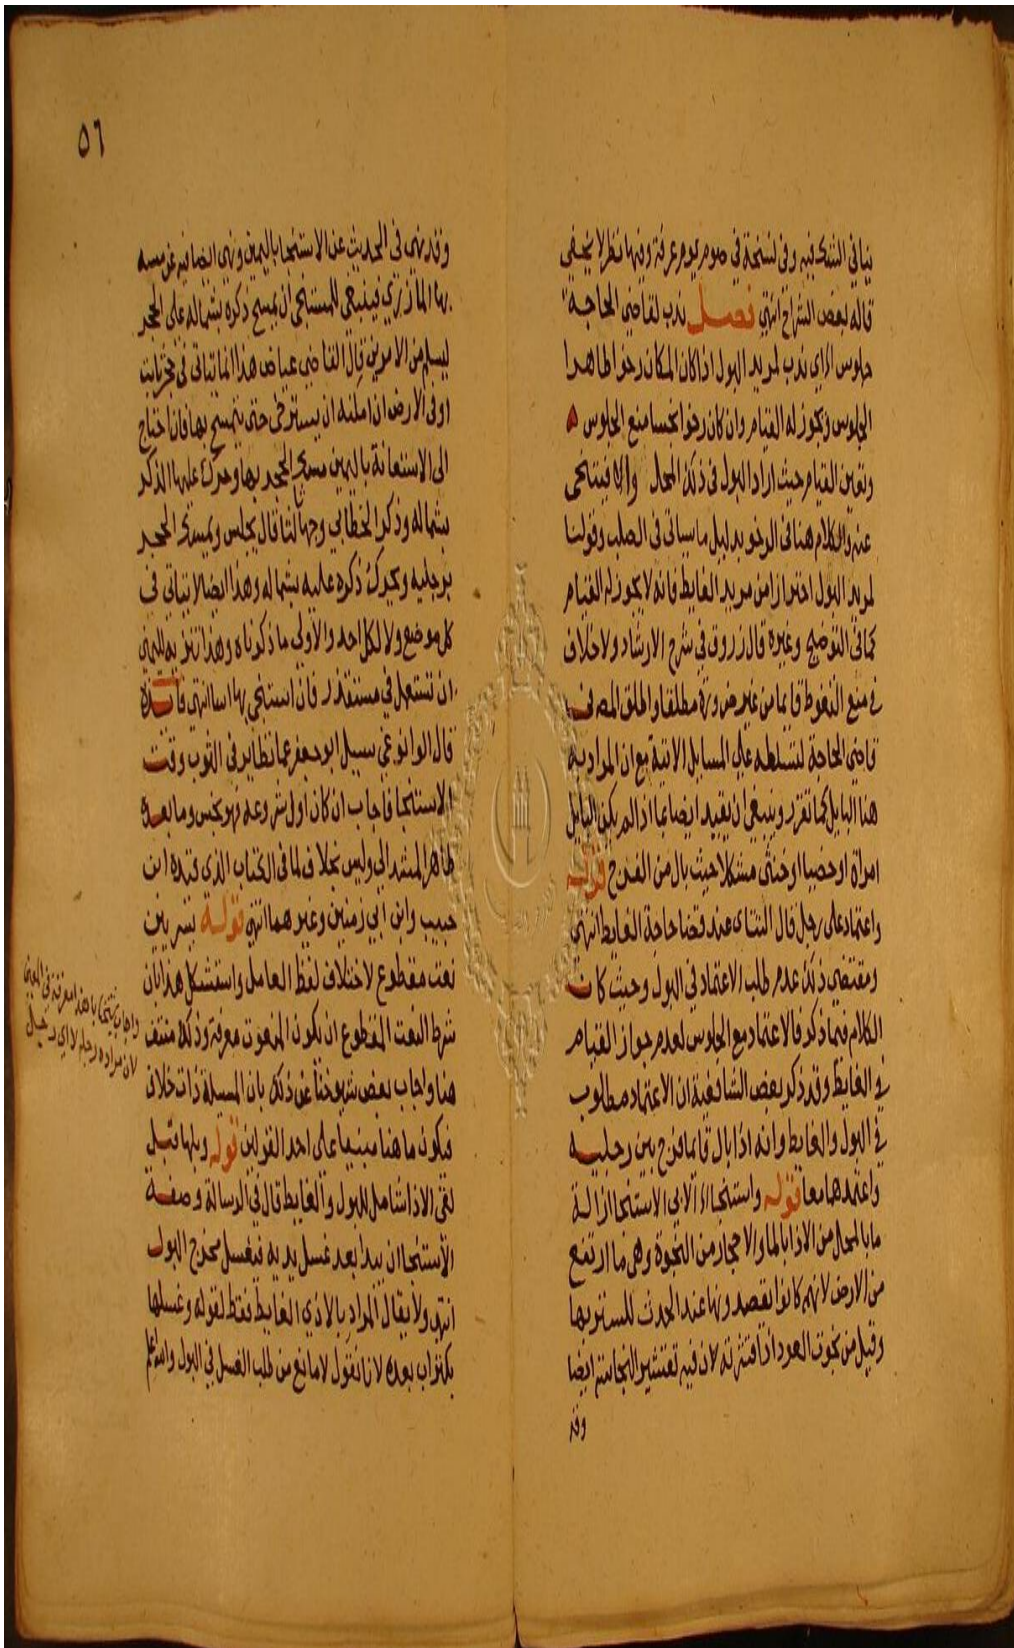 ينافي الشك فيه وفي نسخة في صوم يوم عرفة وفيها نظر لا يخفي
قاله بعض الشراح انتهي فصل ندب لقاضي الحاجة
جلوس اي ندب لمريد البول اذا كان المكان رخوا طاهرا
الجلوس ويجوز له القيام وان كان رخوا نجسا منع الجلوس ه
وتعين القيام حيث اراد البول في ذلك المحل والا فيتنحى
عنه والكلام هنا في الرخو بدليل ما سياتي في الصلب وقولنا
لمريد البول احترازا من مريد الغايط فانه لا يجوز له القيام
كما في التوضيح وغيره قال زروق في شرح الارشاد ولا خلاف
في منع التغوط قايما من غير ضرورة مطلقا واطلق المصنف
قاضي الحاجة لتسلطه علي المسايل الاتية مع ان المراد به
هنا البايل كما تقرر وينبغي ان يقيد ايضا بما اذا لم يكن البايل
امراة او خصيا او خنثى مشكلا حيث بال من الفرج قوله
واعتماد على رجل قال التتاي عند قضا حاجة الغايط انتهي
ومقتضي ذلك عدم طلب الاعتماد في البول وحيث كان
الكلام فيما ذكر فالاعتماد مع الجلوس لعدم جواز القيام
في الغايط وقد ذكر بعض الشافعية ان الاعتماد مطلوب
في البول والغايط وانه اذا بال قايما فرج بين رجليه
واعتمدهما معا قوله واستنجاء الابي الاستنجا ازالة
ما بالمحل من الاذا بالما والاحجار من النجوة وهي ما ارتفع
من الارض لانهم كانوا يقصدونها عند الحدث للستر بها
وقيل من نجوت العود اذا قشرته لان فيه تقشير النجاسة ايضا
وقد
٥٦
وقد نهي في الحديث عن الاستنجا باليمين ونهي ايضا فيه عن مسه
بها المازري فينبغي للمستنجي ان يمسح ذكره بشماله على الحجر
ليسلم من الامرين قال القاضي عياض هذا انما ياتي في حجر ثابت
او في الارض ان امكنه ان يسترخي حتى يتمسح بها فان احتاج
الى الاستعانة باليمين مسك الحجر بها وحرك عليها الذكر
بشماله وذكر الخطابي وجها ثالثا قال يجلس ويمسك الحجر
برجليه ويحرك ذكره عليه بشماله وهذا ايضا لا يتاتي في
كل موضع ولا لكل احد والاولي ما ذكرناه وهذا تنزيه لليمين
ان تستعمل في مستقذر فان استنجي بها اسا انتهي فايدة
قال الوانوغي سيل ابو جعفر عما تطاير في الثوب وقت
الاستنجا فاجاب ان كان اول شروعه فهو نجس وما بعده
حبيب وابن ابي زمنين وغيرهما انتهي قوله بيسريين
نعت مقطوع لاختلاف لفظ العامل واستشكل هذا بان
شرط النعت المقطوع ان يكون المنعوت معرفة وذلك منتف
هنا واجاب بعض شيوخنا عن ذلك بان المسيلة ذات خلاف
فيكون ما هنا مبنيا على احد القولين قوله وبلها قبل
لقي الاذا شامل للبول والغايط قال في الرسالة وصفة
الاستنجا ان يبدا بعد غسل يديه فيغسل مخرج البول
انتهي ولا يقال المراد بالاذي الغايط فقط لقوله وغسلها
بكتراب بعده لانا نقول لا مانع من طلب الغسل في البول والله اعلم
لان مراده رجله لا اي رجل